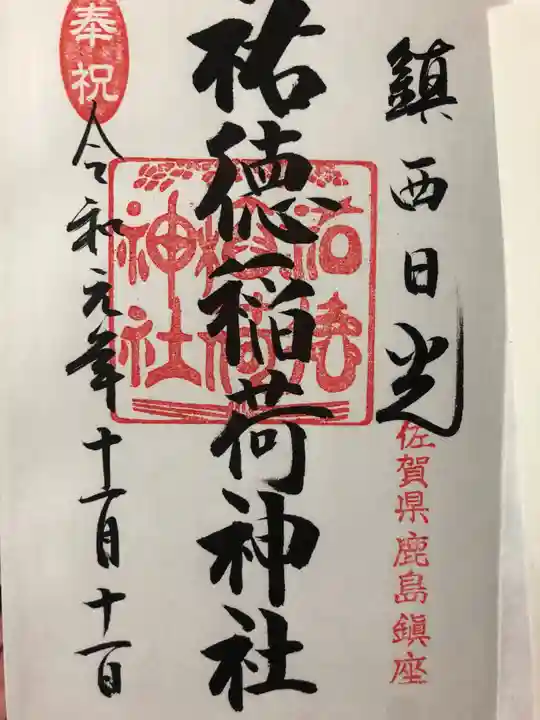 鎮西日光
佐賀県鹿島鎮座
祐徳稲荷神社
祐徳
稲荷
神社
奉祝
令和元年十一月十一日